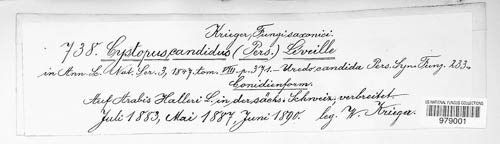 Krieger, Fungi saxonici
738. Cystopus candidus (Pers.) Léveille
in Ann. S. Nat. Ser. 3, 1847. tom. VIII. p. 371. — Uredo candida Pers. Syn. Fung. 223.
Conidienform.
Auf Arabis Halleri L. in der sächs. Schweiz verbreitet.
Juli 1883, Mai 1887, Juni 1890. leg. W. Krieger.
US NATIONAL FUNGUS COLLECTIONS
979001